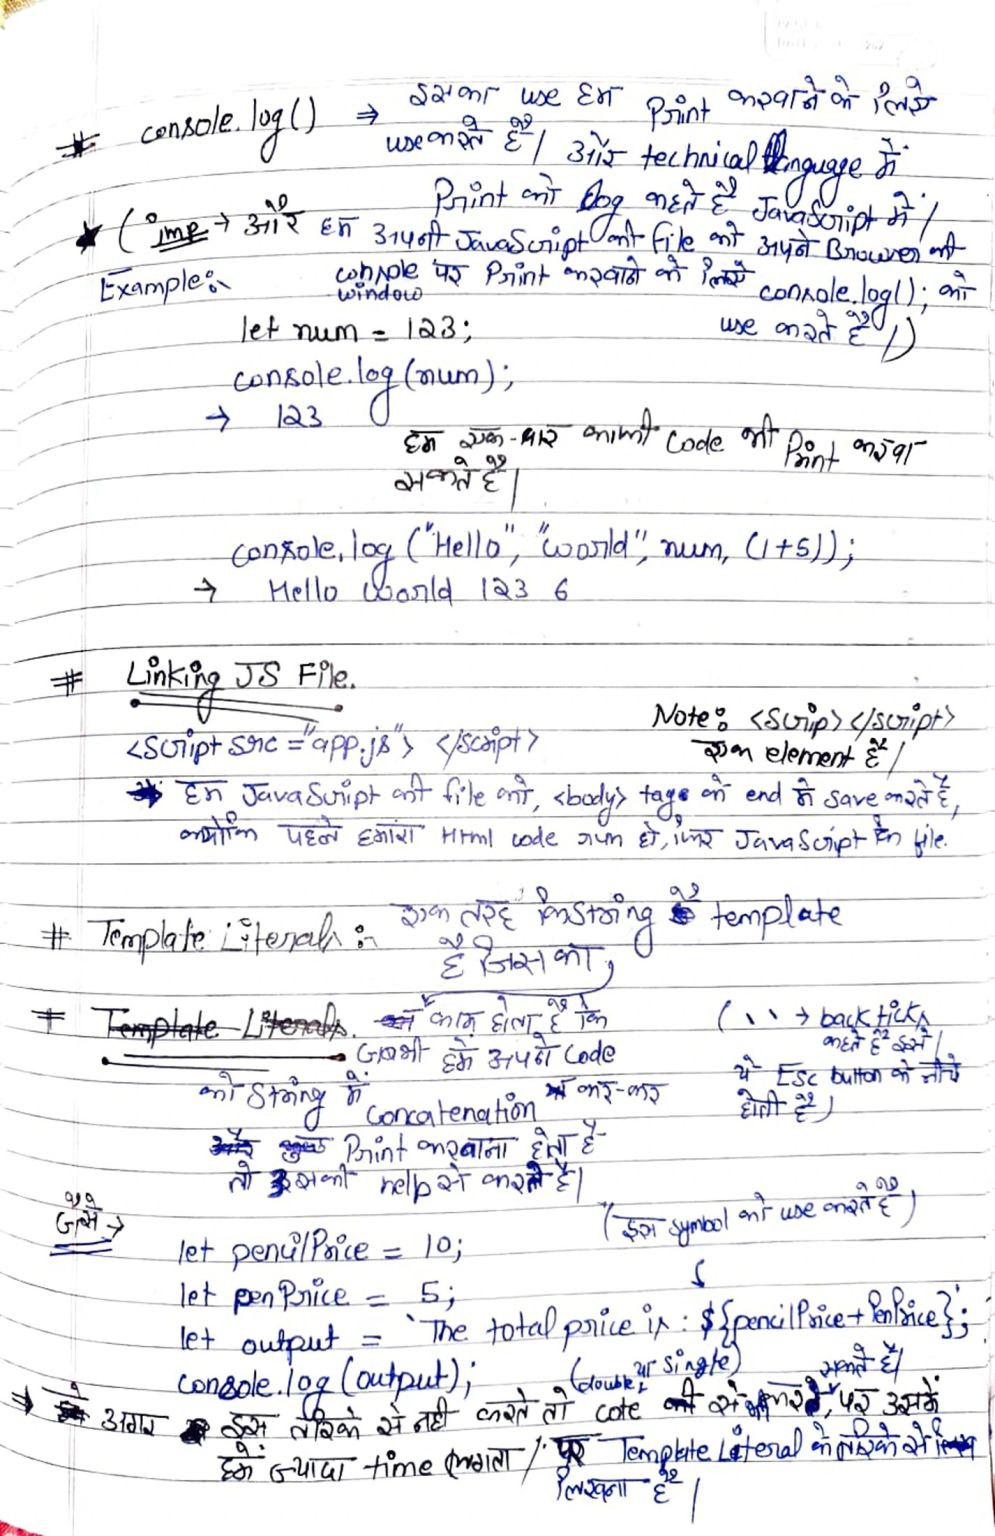 # console.log() ⇒ इसका use हम Print करवाने के लिये
use करते हैं। और technical language में
Print को log कहते हैं JavaScript में।
★ (imp → और हम अपनी JavaScript की file को अपने Browser की
Example:- console पर Print करवाने के लिये console.log(); को
window
let num = 123; use करते हैं।)
console.log(num);
→ 123
हम एक-बार काफी code भी Print करवा
सकते हैं।
console.log ("Hello", "world", num, (1+5));
→ Hello world 123 6
# Linking JS File.
Note: <scrip></script>
<script src ="app.js"> </script> एक element है।
हम JavaScript की file को, <body> tag के end में save करते हैं,
क्योंकि पहले हमारा Html code run हो, फिर JavaScript file.
# Template Literals :- एक तरह कि string template
है जिसका,
# Template Literals. काम होता है कि (` ` → backticks
जब भी हमें अपने code कहते हैं इसे।
को string में concatenation कर-कर ये Esc button के नीचे
होती है)
Print करवाना होता है
तो इसकी help से करते हैं।
जैसे → (इस symbol को use करते हैं)
let pencilPrice = 10;
let penPrice = 5;
let output = `The total price is : ${pencilPrice + PenPrice}`;
console.log (output); (double, या single) सकते हैं।
⇒ अगर इस तरिके से नही करते तो cote से भी कर, पर उसमें
हमें ज्यादा time लगता। पर Template Literal के तरिके से
लिखना है।